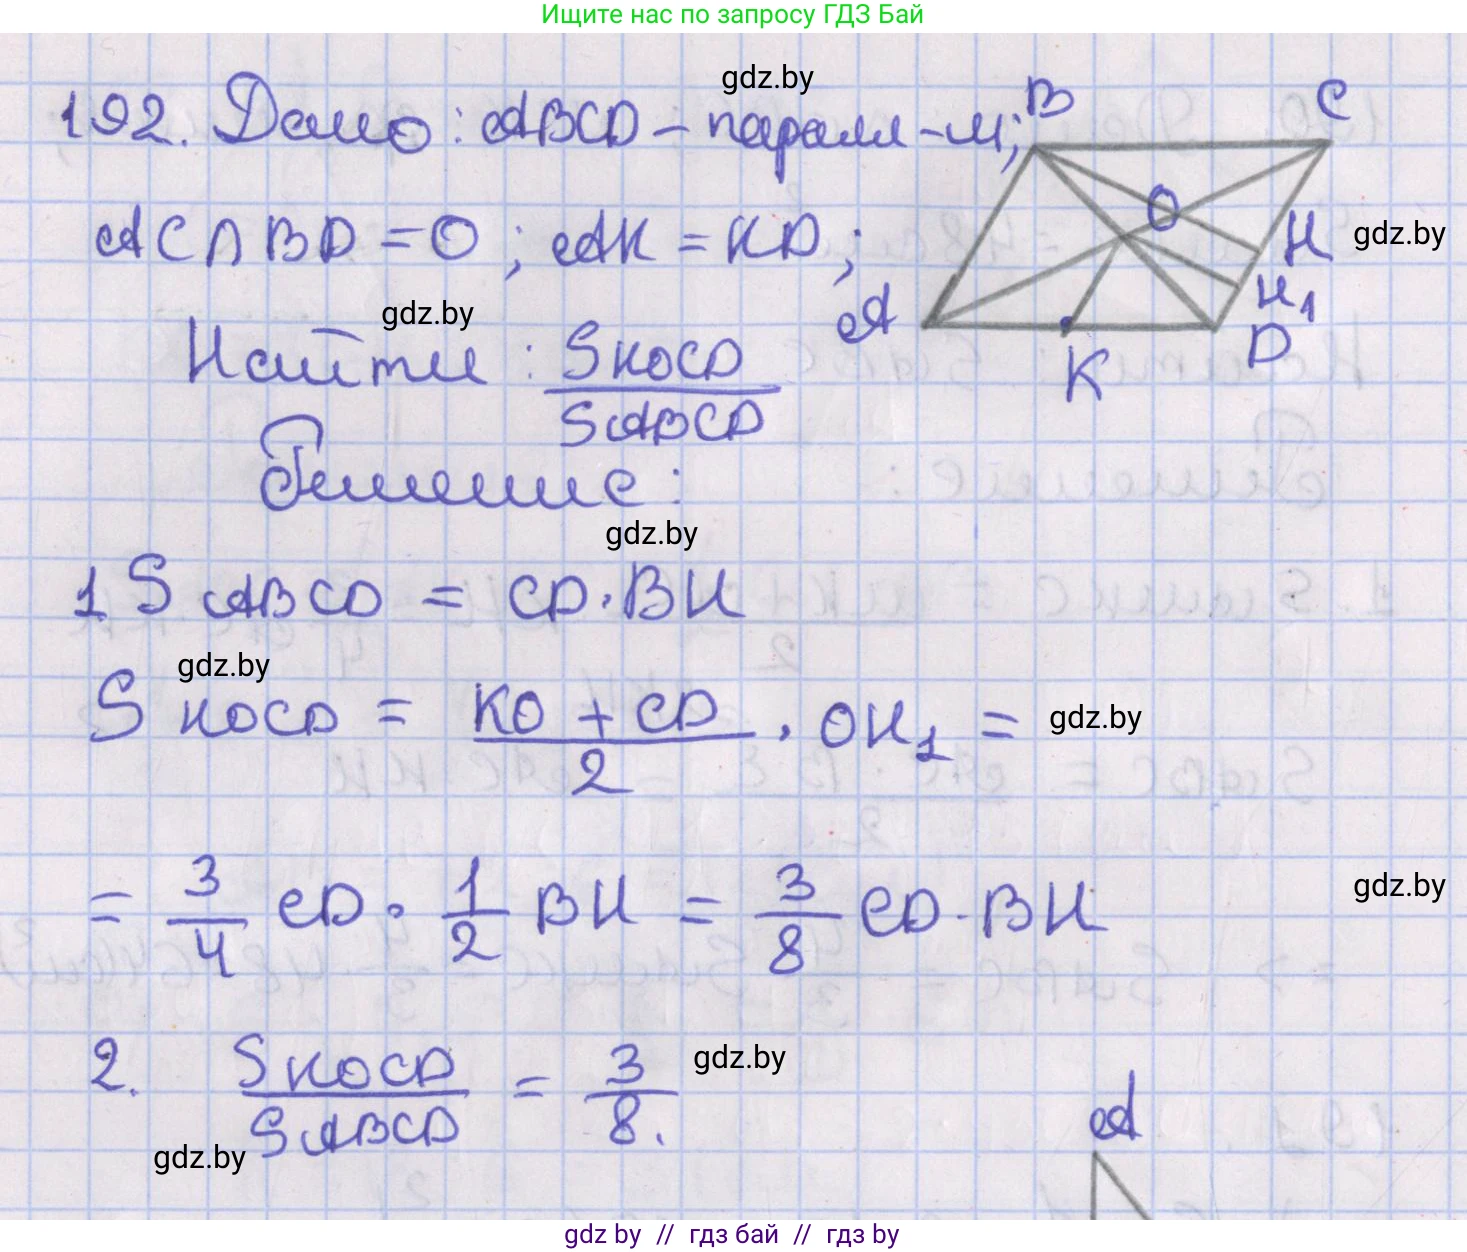 Ищите нас по запросу ГДЗ Бай
gdz.by
192. Дано: ABCD - паралл-м;
B
C
AC ∩ BD = O; AK = KD;
O
H
gdz.by
gdz.by
A
H₁
D
K
Найти: SKOCD / SABCD
Решение:
gdz.by
1 S ABCD = CD · BH
gdz.by
S KOCD = (KO + CD) / 2 · OH₁ =
gdz.by
= 3/4 CD · 1/2 BH = 3/8 CD · BH
gdz.by
2. SKOCD / SABCD = 3/8.
gdz.by
A
gdz.by
gdz by // гдз бай // гдз by